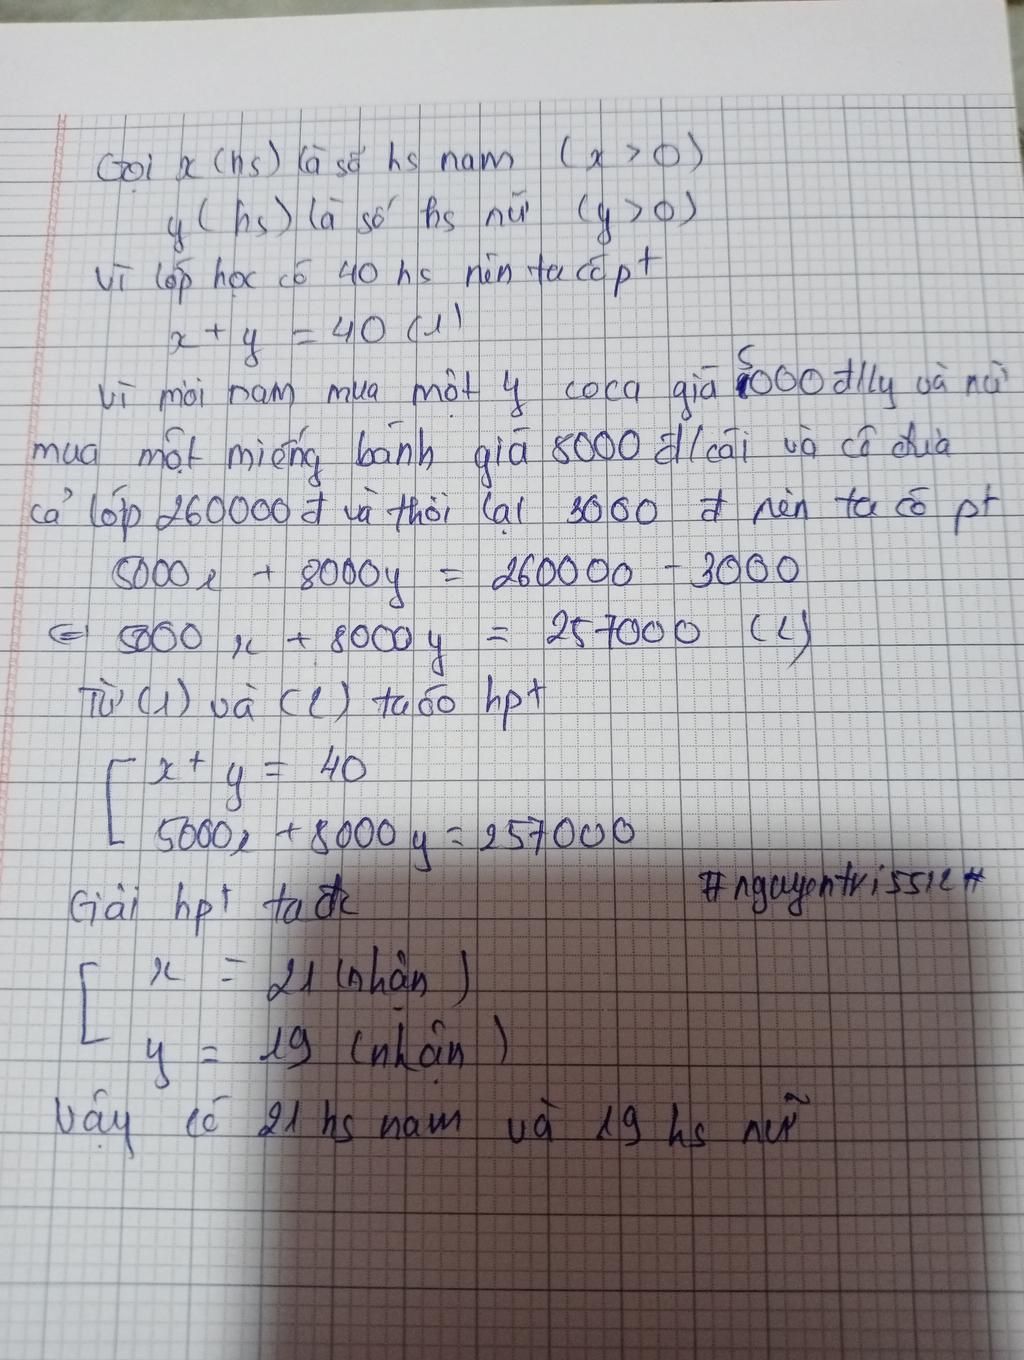 Gọi x (hs) là số hs nam (x > 0)
y (hs) là số hs nữ (y > 0)
Vì lớp học có 40 hs nên ta có pt
x + y = 40 (1)
Vì mỗi nam mua một ly coca giá 5000 đ/ly và nữ
mua một miếng bánh giá 8000 đ/cái và cô đưa
cả lớp 260000 đ và thối lại 3000 đ nên ta có pt
5000x + 8000y = 260000 - 3000
⇔ 5000x + 8000y = 257000 (2)
Từ (1) và (2) ta có hpt
x + y = 40
5000x + 8000y = 257000
Giải hpt ta đc
x = 21 (nhận)
y = 19 (nhận)
Vậy có 21 hs nam và 19 hs nữ